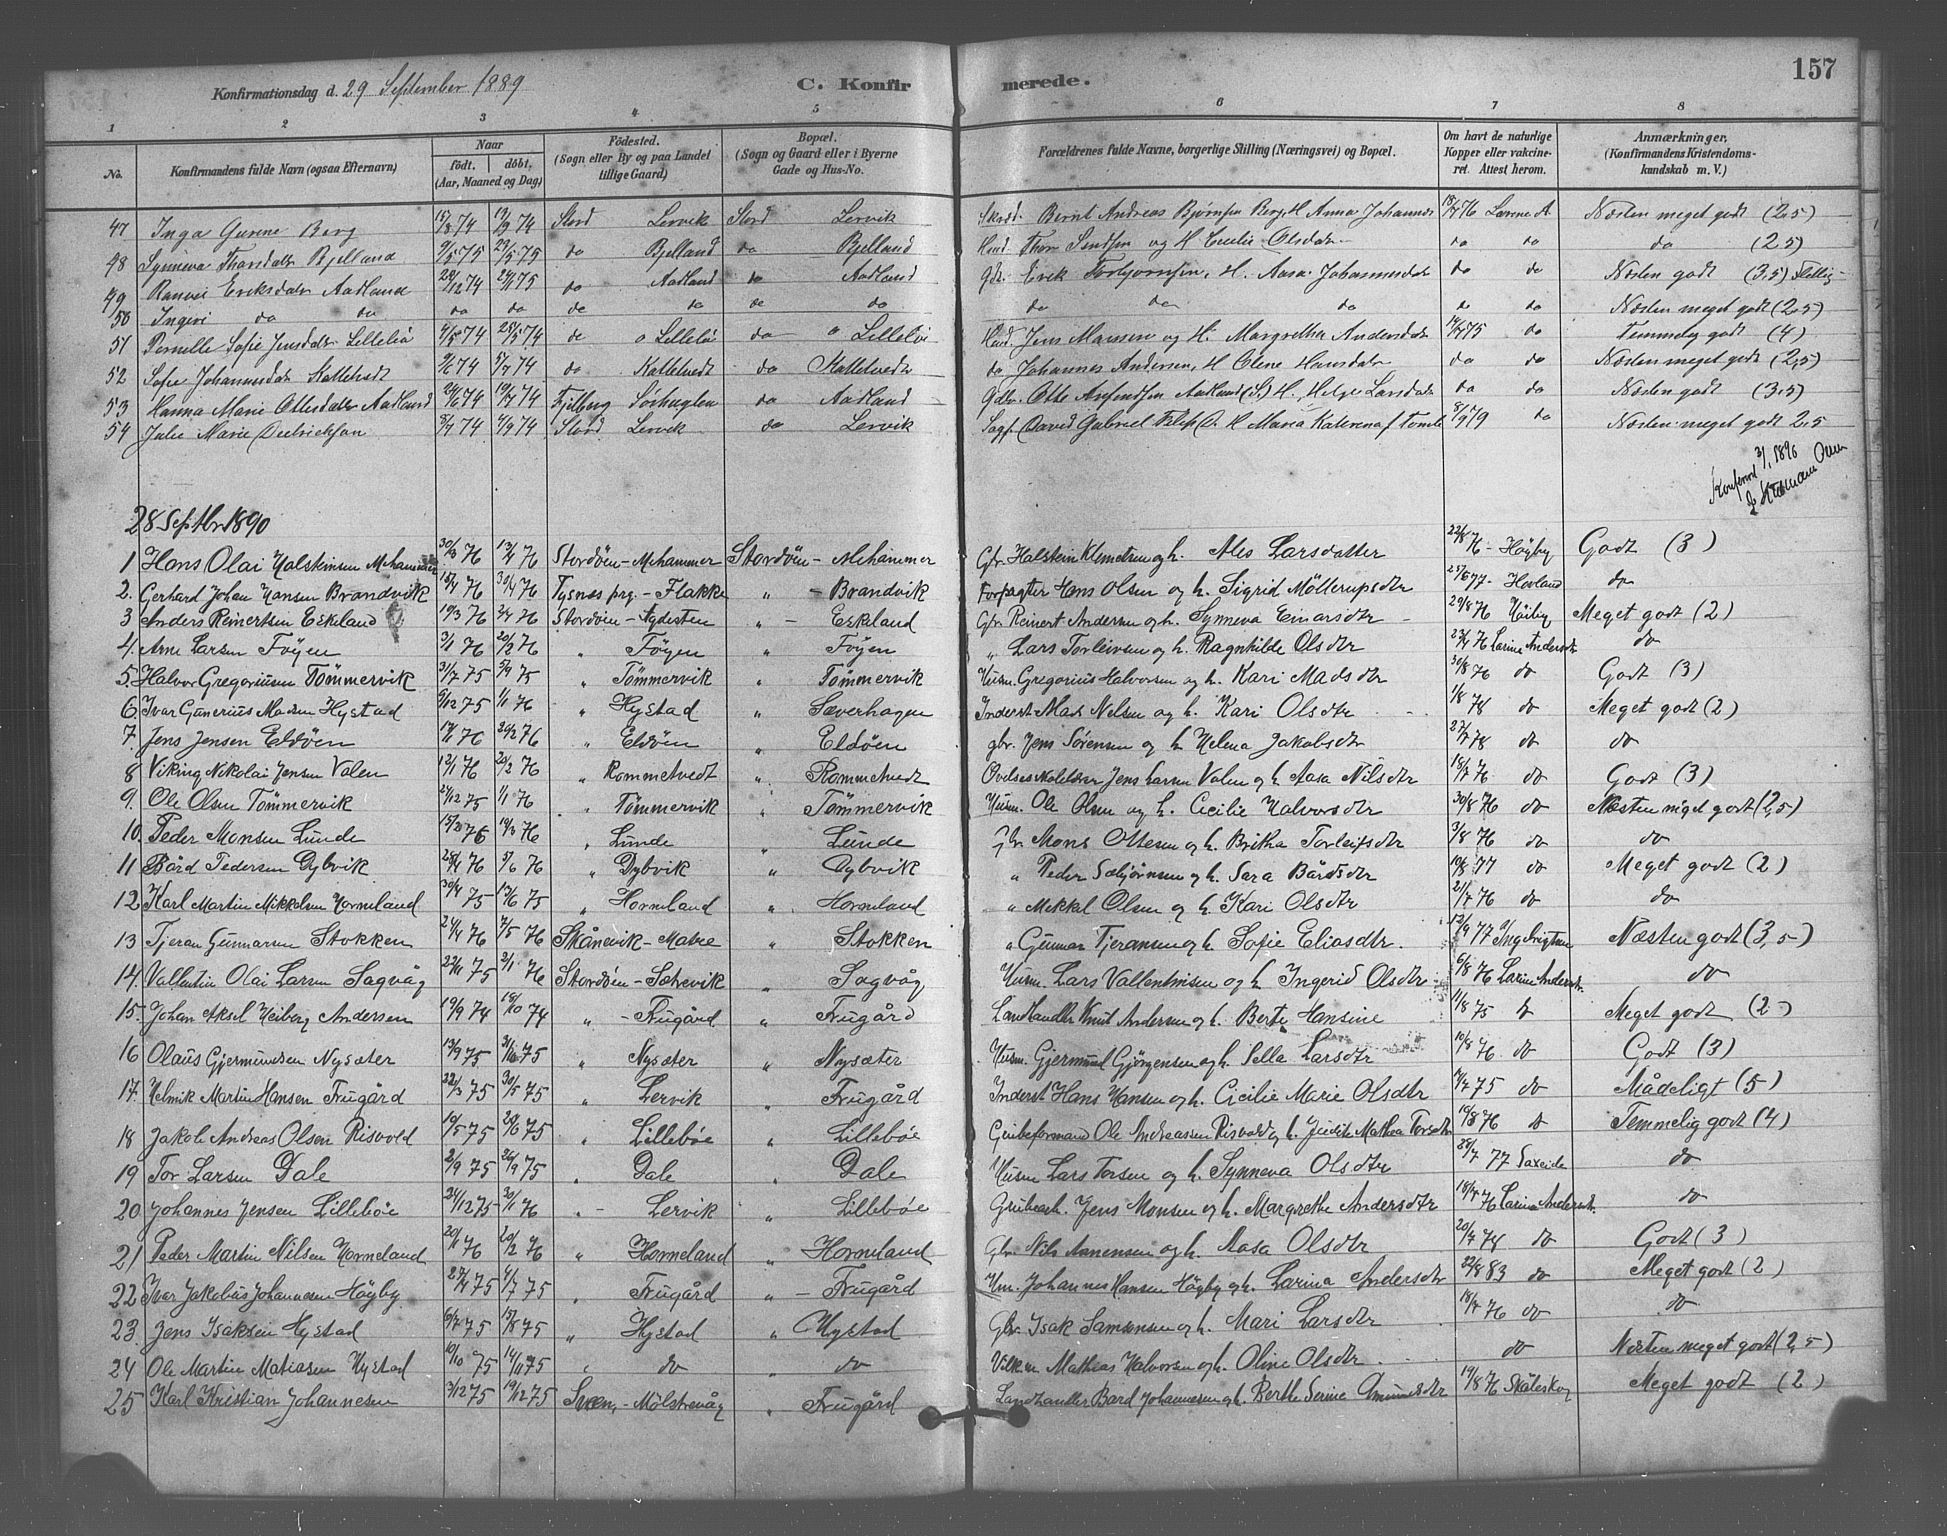 157
Konfirmationsdag d. 29 September 1889 C. Konfirmerede.
1 2 3 4 5 6 7 8
No. Konfirmandens fulde Navn (ogsaa Efternavn) Naar födt, döbt, (Aar, Maaned og Dag) Födested. (Sogn eller By og paa Landet tillige Gaard) Bopæl. (Sogn og Gaard eller i Byerne Gade og Hus-No. Forældrenes fulde Navne, borgerlige Stilling (Næringsvei) og Bopæl. Om havt de naturlige Kopper eller vakcineret. Attest herom. Anmærkninger, (Konfirmandens Kristendomskundskab m. V.)
47 Inga Gurine Berg 15/8 74 19/9 74 Stord Lervik Stord Lervik Bernt Andreas Bjørnsen Berg, H Anna Johannes 18/7 76 Larine A Næsten meget godt (2,5)
48 Synneva Thorsdatr Bjelland 9/5 75 29/5 75 do Bjelland do Bjelland Thor Sendsen og H Cecilie Olsdatr do do do (2,5)
49 Ranvei Eriksdatr Aadland 22/12 74 24/1 75 do Aadland do Aadland Gdr. Erik Torbjørnsen, H. Aasa Johannesdatr do do Næsten godt (3,5) flittig
50 Ingeri do do do do do do do do do do do do do Næsten meget godt (2,5)
51 Pernelle Sofie Jensdatr Lillebö 4/5 74 25/5 74 do Lillebö do Lillebö Jens Monssen og H. Margrethe Andersdatr 14/7 75 do Temmelig godt (4)
52 Sofie Johannesdatr Kattetvedt 9/6 74 5/7 74 do Kattetvedt do Kattetvedt do Johannes Andersen, H Oline Hansdatr do do Næsten meget godt (2,5)
53 Hanna Marie Ottesdatr Aadland 24/6 74 19/7 74 Fjelberg do Aadland Gdbr. Otte Aadland (S) H. Helge Larsdatr do do Næsten godt (3,5)
54 Julie Marie Didrickson 3/7 74 7/9 74 Stord Lervik do Lervik David Gabriel H Maria Katerina 8/9 79 do Næsten meget godt 2,5
1896
28 Septbr 1890
1 Hans Olai Halsteinsen Mehammer 30/3 76 17/4 76 Stordöen - Mehammer Stordöen - Mehammer Gbr. Halstein Klemetsen og h. Ales Larsdatter 22/8 76 - Högby Godt (3)
2. Gerhard Johan Hansen Brandvik 15/4 76 30/4 76 Tysnæs prg. - Flakke " - Brandvik Forpagter Hans Olsen og h. Sigrid Möllerupsdtr 27/6 77 - Hovland do
3 Anders Reinertsen Eskeland 10/3 76 2/4 76 Stordöen - Nydesten " - Eskeland Gbr Reinert Andersen og h. Synneva Einarsdtr 29/8 76 Höiby Meget godt (2)
4. Arne Larsen Föyen 3/1 76 20/2 76 " Föyen " Föyen " Lars Torleivsen og h. Ragnhilde Olsdtr 23/4 76 Larine Andersdtr. do
5. Halvor Gregoriusen Tömmervik 31/7 75 5/9 75 " Tömmervik " Tömmervik Husm. Gregorius Halvorsen og h. Kari Madsdtr 30/8 76 do Godt (3)
6. Ivar Gunerius Madsen Hystad 9/12 75 1/1 76 " Hystad " Sæverhagen Inderst Mads Nelsen og h. Kari Olsdtr 1/8 78 do Meget godt (2)
7. Jens Jensen Eldöen 17/1 76 24/2 76 " Eldöen " Eldöen gbr. Jens Sörensen og h Helena Jakobsdtr 27/7 78 do do
8 Viking Nikolai Jensen Valen 12/1 76 20/2 76 " Rommetvedt " Rommetvedt Jens Larsen Valen og h Aasa Nilsdtr 18/7 76 do Godt (3)
9. Ole Olsen Tömmervik 21/12 75 1/1 76 " Tömmervik " Tömmervik Husm. Ole Olsen og h. Cecilie Halvorsdtr 30/8 76 do Næsten meget godt (2,5)
10. Peder Monsen Lunde 19/3 76 " Lunde " Lunde Gbr Mons Ottesen og h. Britha Torleifsdtr 3/8 76 do do
11 Bård Pedersen Dybvik 28/4 76 5/6 76 " Dybvik " Dybvik " Peder Sæbjörnsen og h. Sara Bårdsdtr 10/8 77 do Meget godt (2)
12 Karl Martin Mikkelsen Horneland 30/4 75 13/6 75 " Horneland " Horneland " Mikkel Olsen og h Kari Olsdtr 21/7 76 do do
13 Tjeran Gunnarsen Stokken 24/4 76 7/5 76 Skånevik - Matre " Stokken " Gunnar Tjeransen og h. Sofie Eliasdtr. 12/9 77 Ingebrigtsen Næsten godt (3,5)
14. Vallentin Olai Larsen Sagvåg 22/11 75 2/1 76 Stordöen - Sætrevik " Sagvåg Husm. Lars Vallentinsen og h Ingerid Olsdtr 6/8 76 Larine Andersdtr. do
15. Johan Aksel Heiberg Andersen 19/9 74 18/10 74 " - Frugård " Frugård Landhandler Knut Andersen og h. Berte Hansine 11/8 75 do Meget godt (2)
16 Olaus Gjermundsen Nysæter 13/9 75 31/10 75 " Nysæter " Nysæter Husm. Gjermund Gjörgensen og h. Sella Larsdtr 10/8 76 do Godt (3)
17. Helmik Martin Hansen Frugård 22/3 75 30/5 75 " Lervik " Frugård Inderst Hans Hansen og h. Cicilie Marie Olsdtr 7/7 75 do Mådeligt (5)
18 Jakob Andreas Olsen Risvold 10/5 75 20/6 75 " Lilleböe " Lilleböe Grubeformand Ole Andreassen Risvold og h. Judith Mathea Torsdtr 19/8 76 do Temmelig godt (4)
19 Tor Larsen Dale 2/9 75 26/9 75 " Dale " Dale Husm Lars Torsen og h. Synneva Olsdtr 28/7 77 Saxeide do
20 Johannes Jensen Lilleböe 24/12 75 30/1 76 " - Lervik " Lilleböe Grubearb. Jens Monsen og h. Margrethe Andersdtr 18/7 76 Larina Andersdtr. do
21 Peder Martin Nilsen Horneland 20/1 76 20/2 76 " Horneland " Horneland Gbr Nils Annensen og h. Aasa Olsdtr 20/7 78 do Godt (3)
22 Ivar Jakobus Johannesen Högby 27/4 75 4/7 75 " Frugård " - Frugård Hm. Johannes Hansen Högby og h. Larina Andersdtr 22/8 83 do Meget godt (2)
23. Jens Isaksen Hystad 6/7 75 15/8 75 " Hystad " Hystad Gbr. Isak Samsonsen og h. Mari Larsdtr 18/7 76 do do
24 Ole Martin Matiasen Hystad 10/10 75 14/11 75 " do do Mathias Halvorsen og h. Oline Olsdtr do Næsten meget godt (2,5)
25 Karl Kristian Johannesen 3/12 75 19/12 75 Sveen, - Mölstrevåg " Frugård Landhandler Bard Johannesen og h. Berthe Serine Amundsdtr 19/8 76 Meget godt (2)